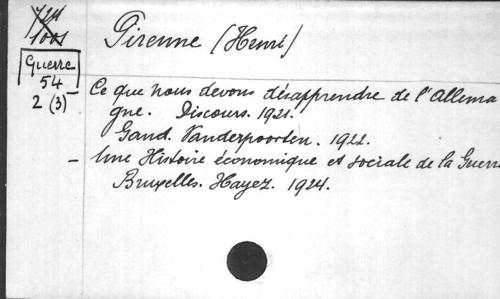 Pirenne (Henri)
1001
Guerre
54
2 (3)
- Ce que nous devons désapprendre de l'Allema
gne. Discours. 1921.
Gand. Vanderpoorten. 1922.
- Une Histoire économique et sociale de la Guerre
Bruxelles. Hayez. 1924.